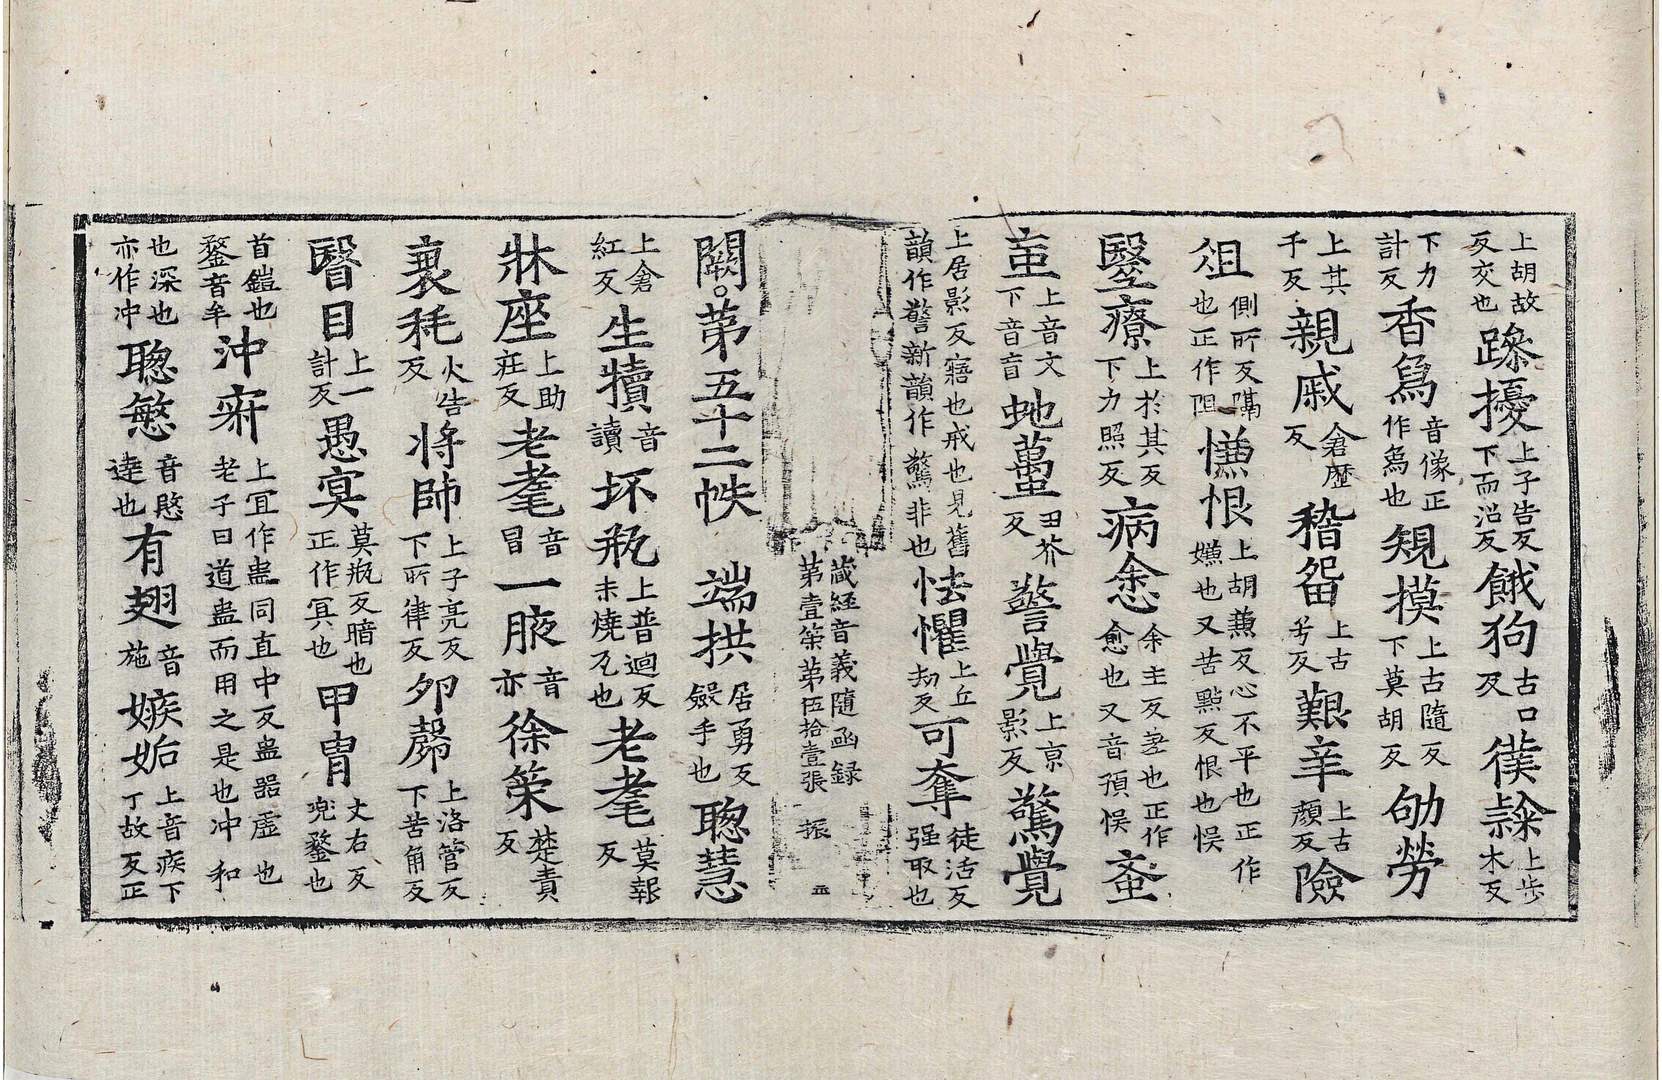 上胡故反交也 躁擾 上子告反下而沼反 餓狗 古口反 㯷 上步木反
下力計反 香爲 音像正作爲也 規摸 上古隨反下莫胡反 劬勞
上其千反 親戚 倉歷反 稽留 上古兮反 艱辛 上古顔反 險
俎 側所反隔也正作阻 慊恨 上胡蒹反心不平也正作嫌也又苦點反恨也悮
毉療 上於其反下力照反 病悆 余主反差也正作愈也又音預悮 蚉
䖟 上音文下音盲 虵蠆 丑芥反 警覺 上京影反 驚覺
上居影反寤也戒也見舊韻作警新韻作驚非也 怯懼 上丘劫反 可奪 徒活反强取也
藏經音義隨函録 第壹筞第伍拾壹張 振 五
闕。第五十二帙 端拱 居勇反斂手也 聰慧
上倉紅反 生犢 音讀 坏瓶 上普迴反未燒瓦也 老耄 莫報反
牀座 上助莊反 老耄 音冒 一腋 音亦 徐策 楚責反
衰秏 火告反 将師 上子亮反下所律反 卵㱿 上洛管反下苦角反
瞖目 上一計反 愚㝠 莫瓶反暗也正作冥也 甲冑 丈右反兜鍪也
首鎧也鍪音牟 沖㝛 上冝作盅同直中反盅器虛也老子曰道盅而用之是也沖和
也深也亦作冲 聡慜 音愍達也 有翅 音施 嫉妬 上音疾下丁故反正